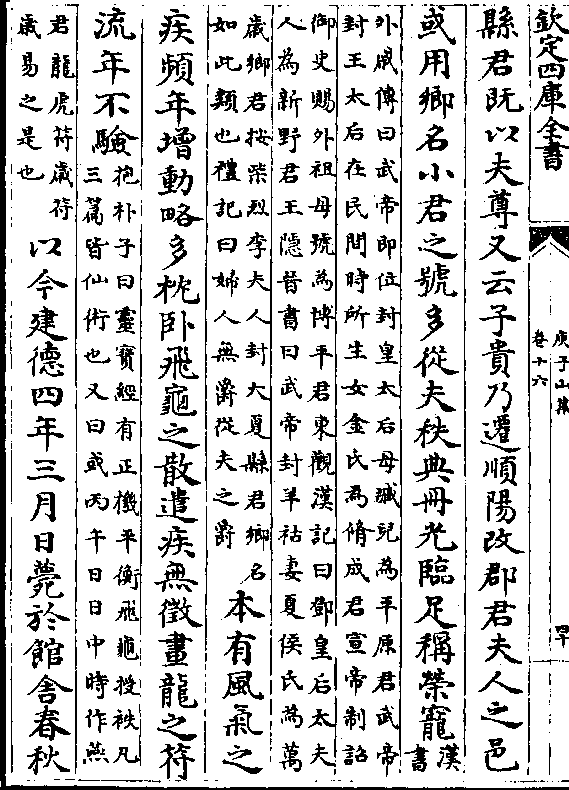 欽定四庫全書
庚子山集
卷十六
縣君既以夫尊又云子貴乃遷順陽改郡君夫人之邑
或用鄉名小君之號多從夫秩典冊光臨足稱榮寵
漢
書
外戚傳曰武帝即位封皇太后母臧兒為平原君武帝
封王太后在民間時所生女金氏為脩成君宣帝制詔
御史賜外祖母號為博平君東觀漢記曰鄧皇后太夫
人為新野君王隱晉書曰武帝封羊祜妻夏侯氏為萬
歲鄉君按柴烈李夫人封大夏縣君鄉名
如此類也禮記曰婦人無爵從夫之爵
本有風氣之
疾頻年增動略多枕卧飛龜之散遣疾無徵畫龍之符
流年不驗
抱朴子曰靈寶經有正機平衡飛龜授袟凡
三篇皆仙術也又曰或丙午日日中時作燕
君龍虎符歲符
歲易之是也
以今建德四年三月日薨於館舍春秋